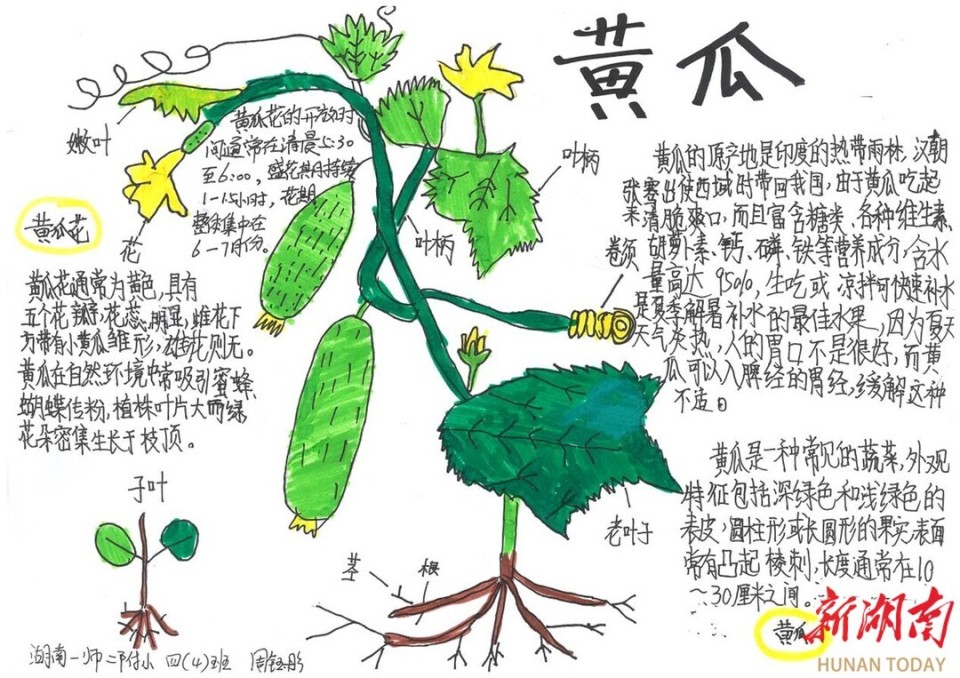 黄瓜
嫩叶
黄瓜花的开放时
间通常在清晨5:30
至6:00，盛花期月持续
1-1.5小时，花期
暂时集中在
6-7月份。
叶柄
叶柄
黄瓜花
花
卷须
黄瓜的原产地是印度的热带雨林，汉朝
张骞出使西域时带回我国，由于黄瓜吃起
来清脆爽口，而且富含糖类、各种维生素、
胡萝卜素、钙、磷、铁等营养成分，含水
量高达95%，生吃或凉拌可快速补水
是夏季解暑补水的最佳水果，因为夏天
天气炎热，人的胃口不是很好，而黄
瓜可以入脾经的胃经，缓解这种
不适
黄瓜花通常为黄色，具有
五个花瓣，花蕊明显，雌花下
方带有小黄瓜雏形，雄花则无。
黄瓜在自然环境中常吸引蜜蜂
蝴蝶传粉，植株叶片大而绿
花朵密集生长于枝顶。
子叶
茎
根
老叶子
黄瓜是一种常见的蔬菜，外观
特征包括深绿色和浅绿色的
表皮，圆柱形或长圆形的果实，表面
常有凸起棱刺，长度通常在10
~30厘米之间。
黄瓜
湖南一师二附小 四(4)班 周钰彤
新湖南
HUNAN TODAY